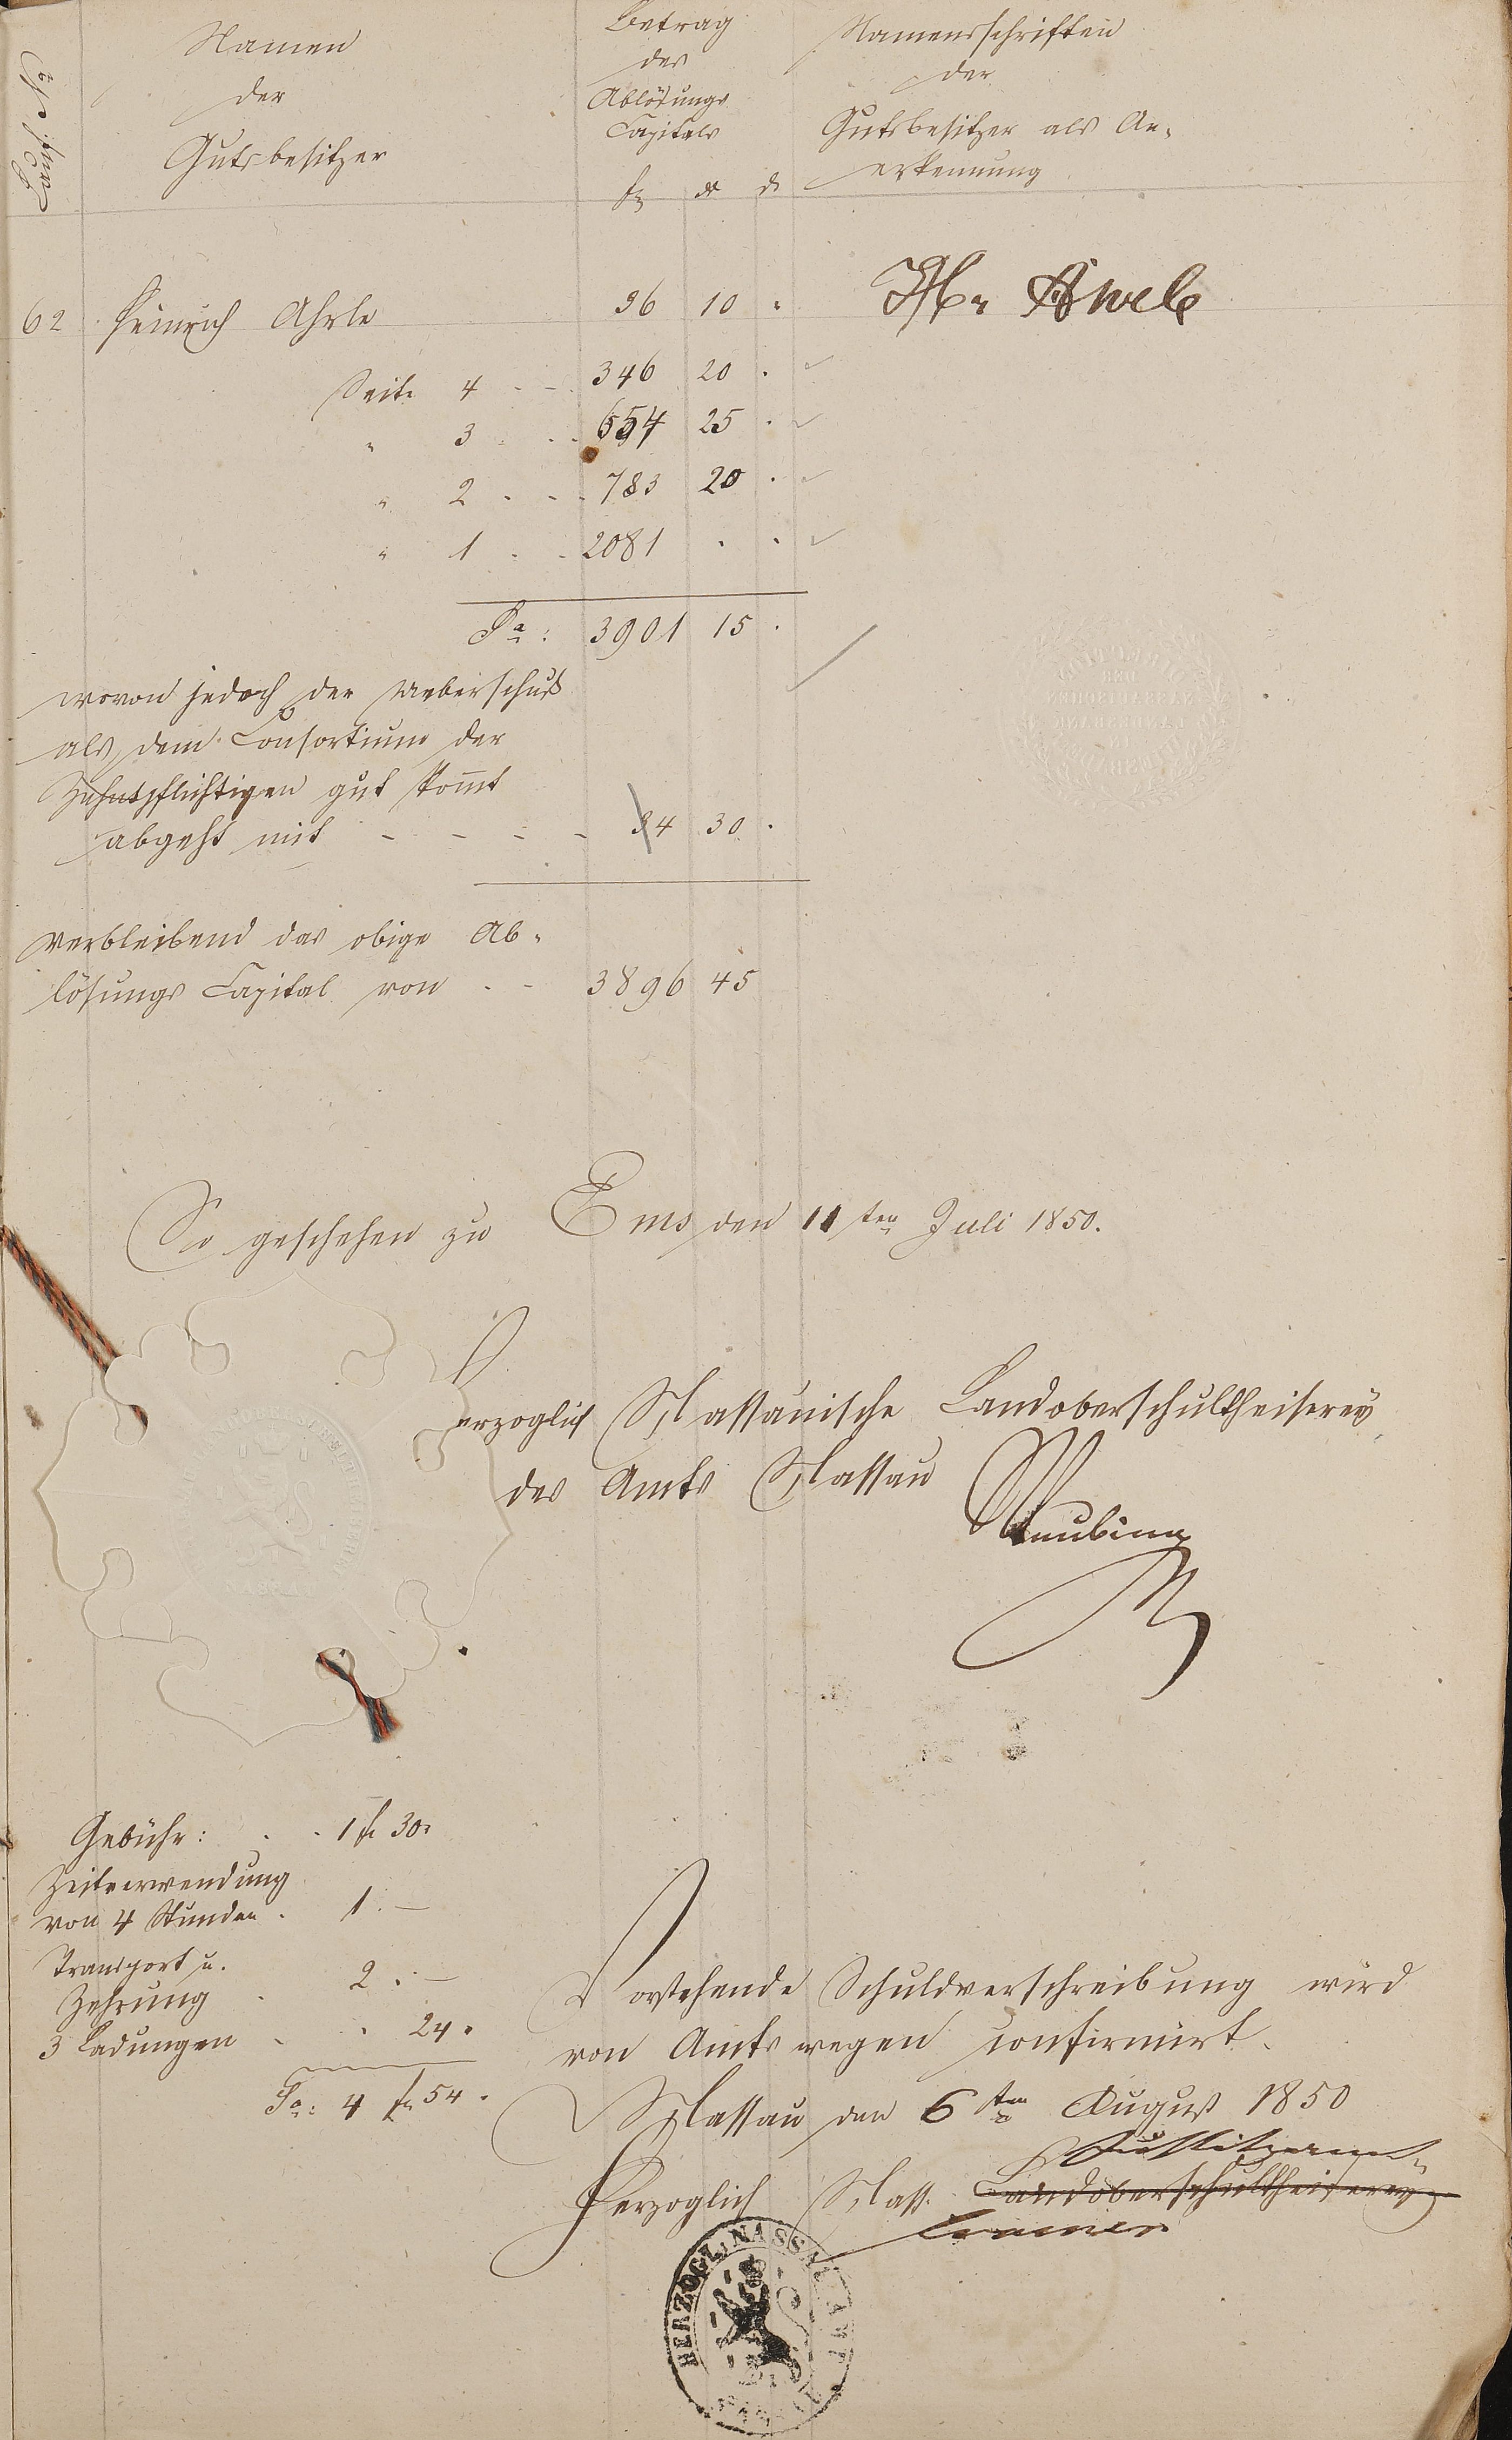 Namen
der
Gutsbesitzer
Betrag
des
Ablösungs
Capitals
fl
Namensschriften
der
Gutsbesitzer als An-
erkennung
62 Heinrich Ahrle 36 10
Seite 4 - - 346 20 .
" 3 . . 654 25 .
" 2 . - . 783 20 .
" 1 . . 2081 . .
Sa: 3901 15 .
wovon jedoch der Ueberschuß
als dem Consortium der
Zehntpflichtigen gut kommt
abgeht mit - - - - 4 30 .
verbleibend das obige Ab-
lösungs Capital von . - 3896 45
So geschehen zu Ems den 11ten Juli 1850.
Herzoglich Nassauische Landoberschultheiserey
des Amts Nassau
Gebühr: . . 1 fl 30
Zeitverwendung
von 4 Stunden . 1. —
Transport u.
Zehrung . 2 . —
3 Ladungen . . 24
Sa: 4 fl 54 .
Vorstehende Schuldverschreibung wird
von Amts wegen confirmirt.
Nassau den 6ten August 1850
Justitzamt
Herzoglich Nass. Landoberschultheiserey
HERZOGL: NASSAU